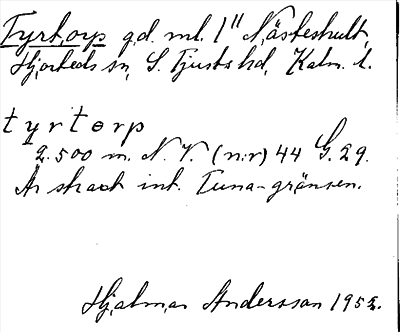 Tyrtorp gd. ml. 1" Nästeshult,
Hjorteds sn, S. Tjusts hd, Kalm. l.
tyrtorp
2.500 m. N. V. (n:r) 44 G. 29.
Är strax int. Tuna-gränsen.
Hjalmar Andersson 1952.